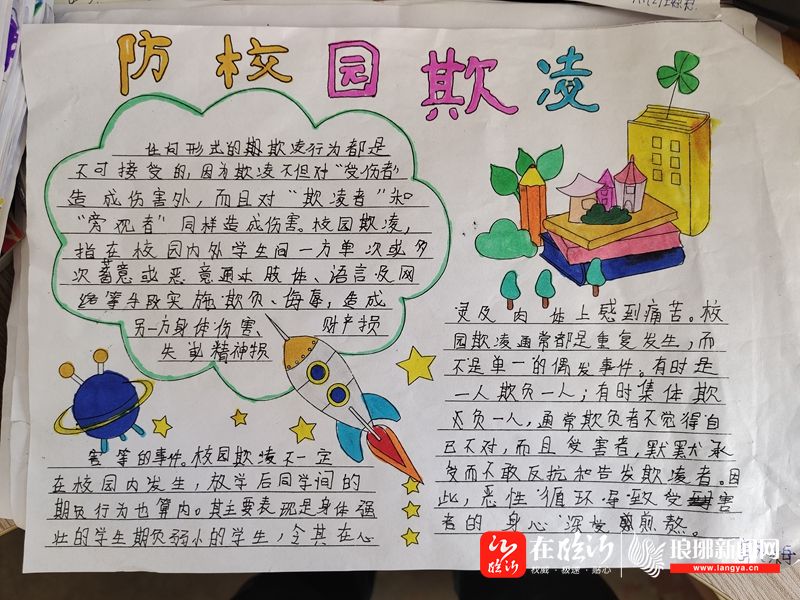 防校园欺凌
任何形式的期欺凌行为都是
不可接受的,因为欺凌不但对“受伤者”
造成伤害外,而且对“欺凌者”和
“旁观者”同样造成伤害。校园欺凌,
指在校园内外学生间一方单次或多
次蓄意或恶意通过肢体、语言及网
络等手段实施欺负、侮辱,造成
另一方身体伤害、财产损
失或精神损
害等的事件。校园欺凌不一定
在校园内发生,放学后同学间的
期负行为也算内。其主要表现是身体强
壮的学生期负弱小的学生,令其在心
灵及肉体上感到痛苦。校
园欺凌通常都是重复发生,而
不是单一的偶发事件。有时是
一人欺负一人;有时集体欺
负一人,通常欺负者不觉得自
己不对,而且受害者,默默承
受而不敢反抗和告发欺凌者。因
此,恶性循环导致受害
者的身心深受煎熬。
在临沂
权威·极速·贴心
琅琊新闻网
www.langya.cn